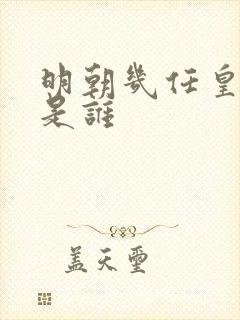 明朝幾任皇
是誰
盖天璽